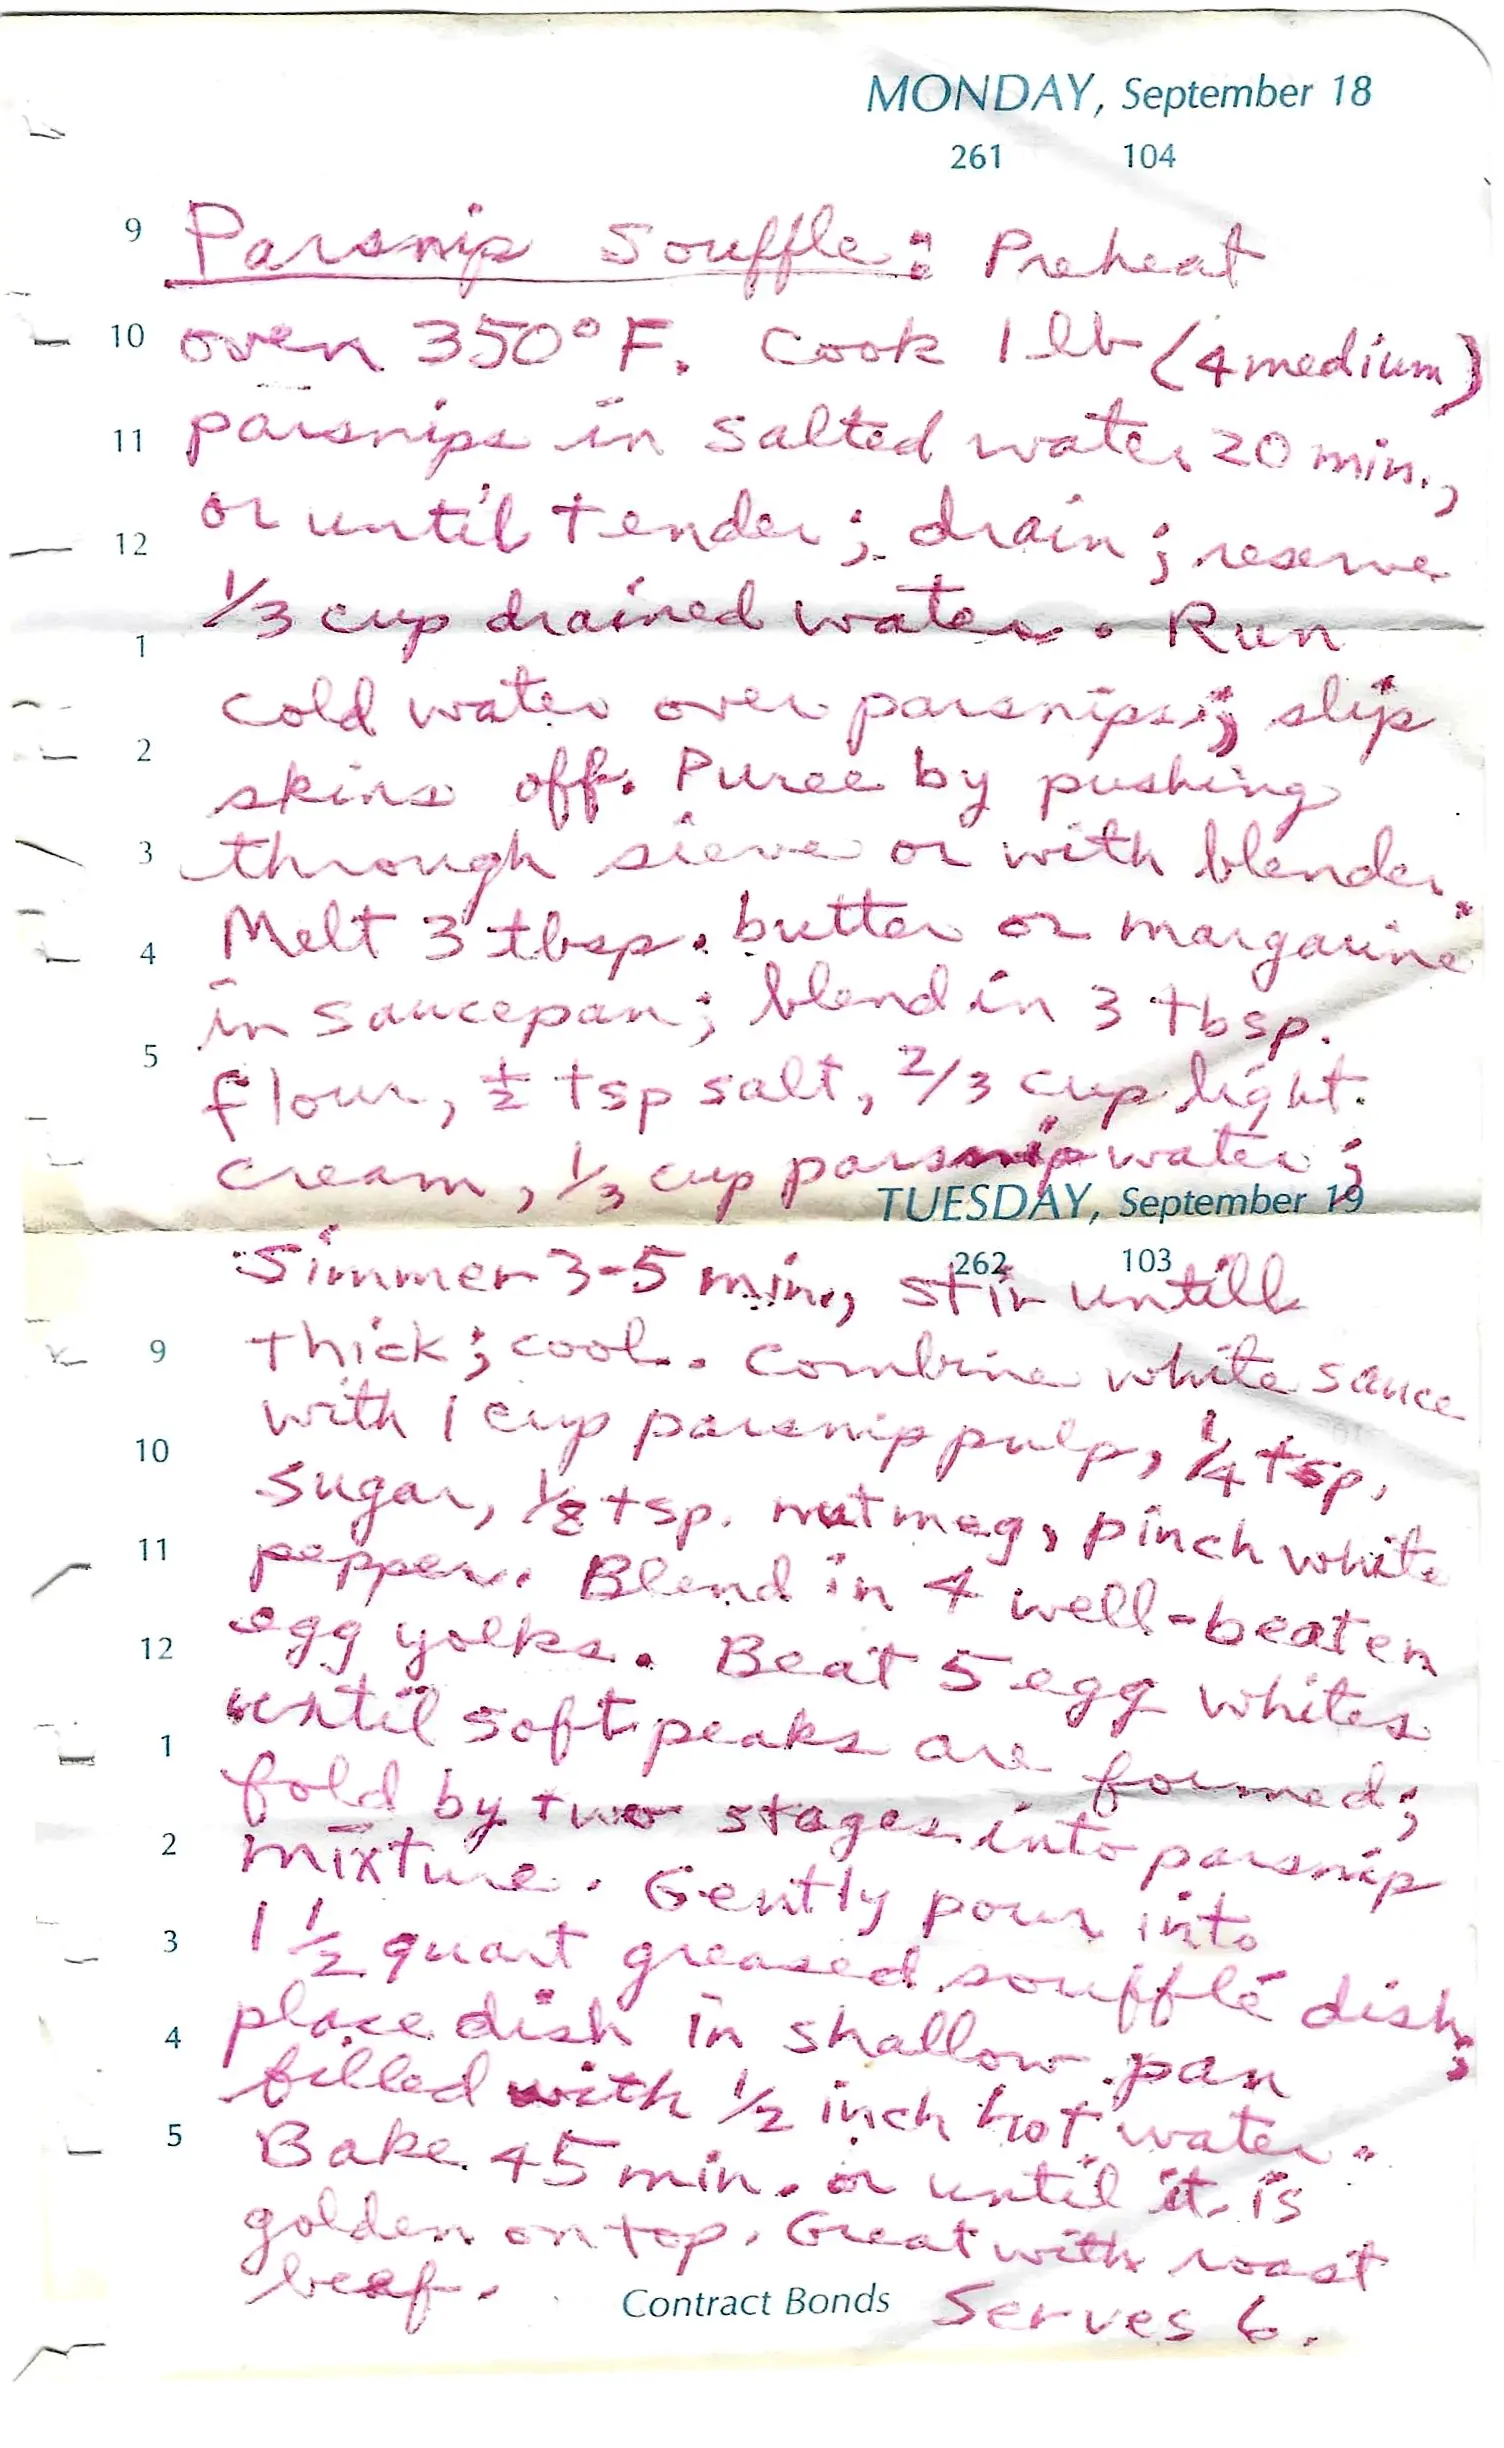 MONDAY, September 18
261 104
9 Parsnip Souffle: Preheat
10 oven 350°F. Cook 1 lb (4 medium)
11 parsnips in salted water 20 min.,
or until tender; drain; reserve
12
1/3 cup drained water. Run
1
cold water over parsnips; slip
2
skins off. Puree by pushing
3 through sieve or with blender.
4 Melt 3 tbsp. butter or margarine
in saucepan; blend in 3 tbsp.
5
flour, 1/2 tsp salt, 2/3 cup light
cream, 1/3 cup parsnip water;
TUESDAY, September 19
262 103
Simmer 3-5 min., stir untill
9 thick; cool. Combine white sauce
with 1 cup parsnip pulp, 1/4 tsp.
10
sugar, 1/8 tsp. nutmeg, pinch white
11
pepper. Blend in 4 well-beaten
12 egg yolks. Beat 5 egg whites
until soft peaks are formed;
1
fold by two stages into parsnip
2 mixture. Gently pour into
3 1 1/2 quart greased soufflé dish;
4 place dish in shallow pan
filled with 1/2 inch hot water.
5 Bake 45 min. or until it is
golden on top. Great with roast
beef.
Contract Bonds Serves 6.